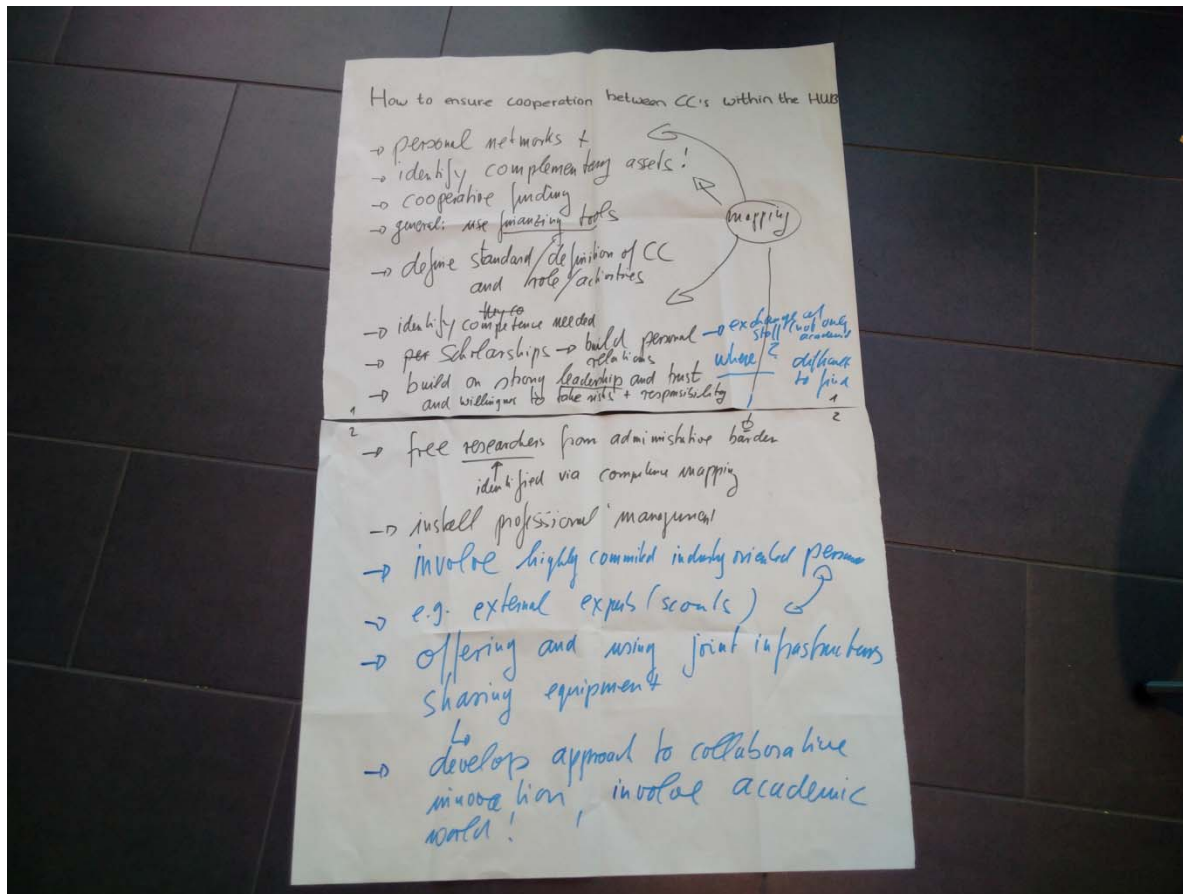 How to ensure cooperation between CC's within the HUB
→ personal networks +
→ identify complementary assets!
→ cooperative funding
→ general: use financing tools
mapping
→ define standard/definition of CC
and role/activities
→ identify competence needed
→ Scholarships → build personal → exchange of
relations
staff (not only
academic
→ build on strong leadership and trust
where? difficult
to find
and willingness to take risks + responsibility
1 1
2 2
→ free researchers from administrative burden
identified via competence mapping
→ install professional management
→ involve highly commited industry oriented persons
→ e.g. external experts (scouts)
→ offering and using joint infrastructures
sharing equipment
→ develop approach to collaborative
innovation, involve academic
world!